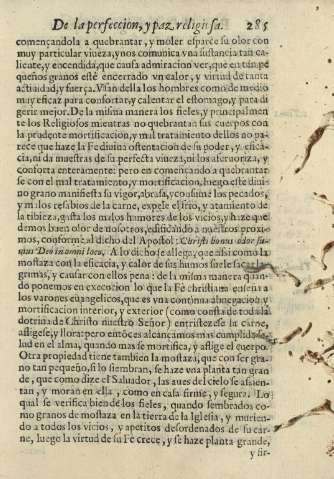 De la perfeccion, y paz religiosa. 285
començandola a quebrantar, y moler esparce su olor con
muy particular viueza, y nos comunica vna sustancia tan ca-
liente, y encendida, que causa admiracion ver, que en tan pe
queños granos esté encerrado vn calor, y virtud de tanta
actiuidad, y fuerça. Vsan della los hombres como de medio
muy eficaz para confortar, y calentar el estomago, y para di
gerir mejor. De la misma manera los fieles, y principalmen
te los Religiosos mientras no quebrantan sus cuerpos con
la prudente mortificacion, y mal tratamiento dellos no pa-
rece que haze la Fe diuina ostentacion de su poder, y efica-
cia, ni da muestras de su perfecta viueza, ni los aferuoriza, y
conforta enteramente: pero en començando a quebrantar
se con el mal tratamiento, y mortificacion, luego este diui
no grano manifiesta su vigor, abrasa, y consume los pecados,
y malos resabios de la carne, expele el frio, y atamiento de
la tibieza, gasta los malos humores de los vicios, y haze que
demos buen olor de nosotros, edificando a nuestros proxi-
mos, conforme al dicho del Apostol: Christi bonus odor su-
mus Deo in omni loco. A lo dicho se allega, que assi como la
mostaza con la eficacia, y calor de sus humos suele sacar la-
grimas, y causar con ellos pena: de la misma manera quan-
do ponemos en execucion lo que la Fe christiana enseña a
los varones euangelicos, que es vna continua abnegacion, y
mortificacion interior, y exterior (como consta de toda la
dotrina de Christo nuestro Señor) entristezese la carne,
afligese, y llora: pero entonces alcançamos mas cumplida sa-
lud en el alma, quando mas se mortifica, y aflige el cuerpo.
Otra propiedad tiene tambien la mostaza, que con ser gra-
no tan pequeño, si lo siembran, se haze vna planta tan gran
de, que como dize el Saluador, las aues del cielo se assien-
tan, y moran en ella, como en casa firme, y segura. Lo
qual se verifica bien de los fieles, quando sembrados co-
mo granos de mostaza en la tierra de la Iglesia, y murien-
do a todos los vicios, y apetitos desordenados de su car-
ne, luego la virtud de su Fe crece, y se haze planta grande,
y fir-